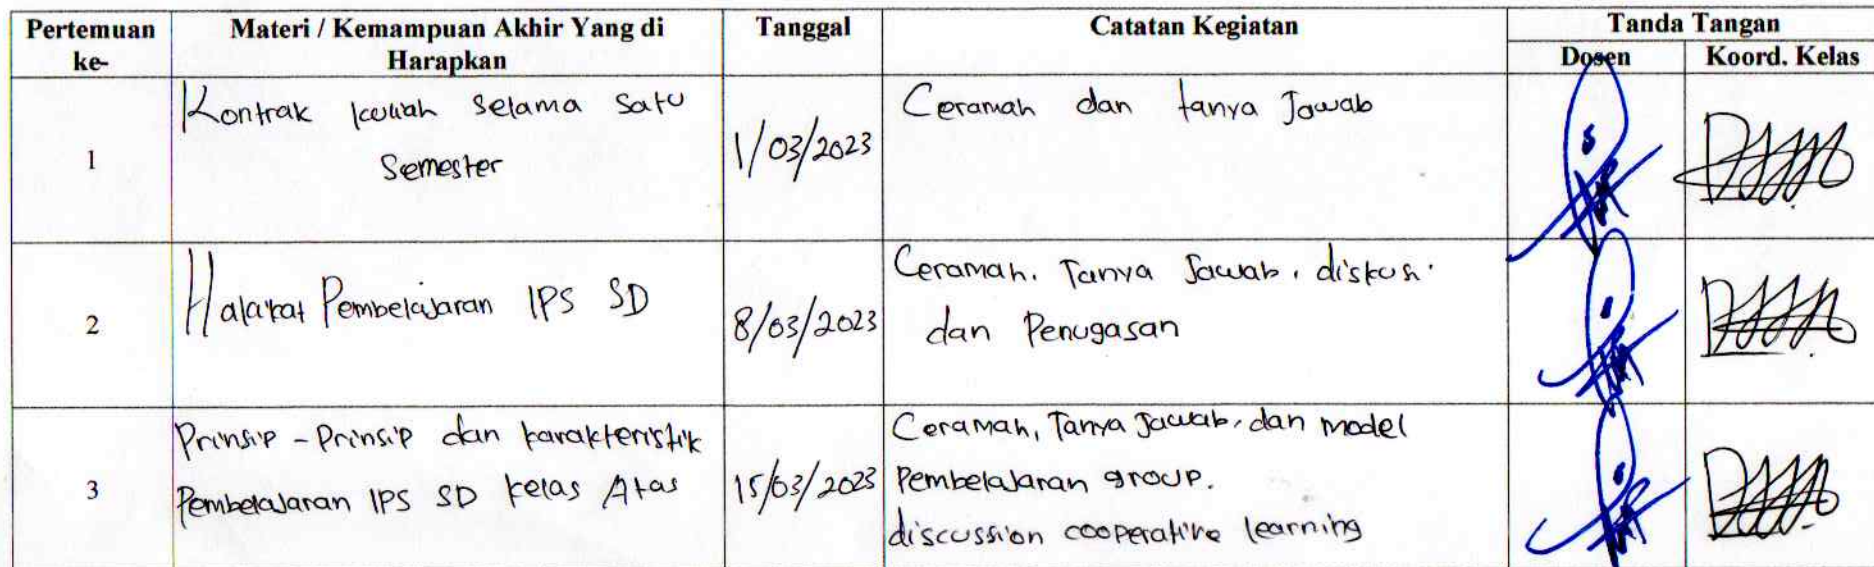 Pertemuan ke-
Materi / Kemampuan Akhir Yang di Harapkan
Tanggal
Catatan Kegiatan
Tanda Tangan
Dosen
Koord. Kelas
1
Kontrak kuliah selama satu
Semester
1/03/2023
Ceramah dan tanya Jawab
2
Halaikat Pembelajaran IPS SD
8/03/2023
Ceramah. Tanya Jawab, diskusi.
dan Penugasan
3
Prinsip - Prinsip dan karakteristik
Pembelajaran IPS SD kelas Atas
15/03/2023
Ceramah, Tanya Jawab, dan model
Pembelajaran group.
discussion cooperative learning